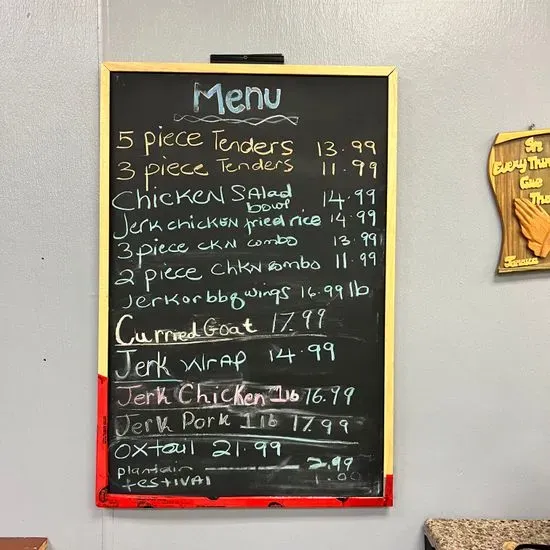 Menu
5 piece Tenders 13.99
3 piece Tenders 11.99
Chicken SAlad bowl 14.99
Jerk chicken fried rice 14.99
3 piece cKN combo 13.99
2 piece ChKN combo 11.99
Jerk or bbq wings 16.99 lb
Curried Goat 17.99
Jerk WrAP 14.99
Jerk Chicken 1lb 16.99
Jerk Pork 1lb 17.99
Oxtail 21.99
plantain 2.99
festival 1.00
In
Every Thin
Give
Tha